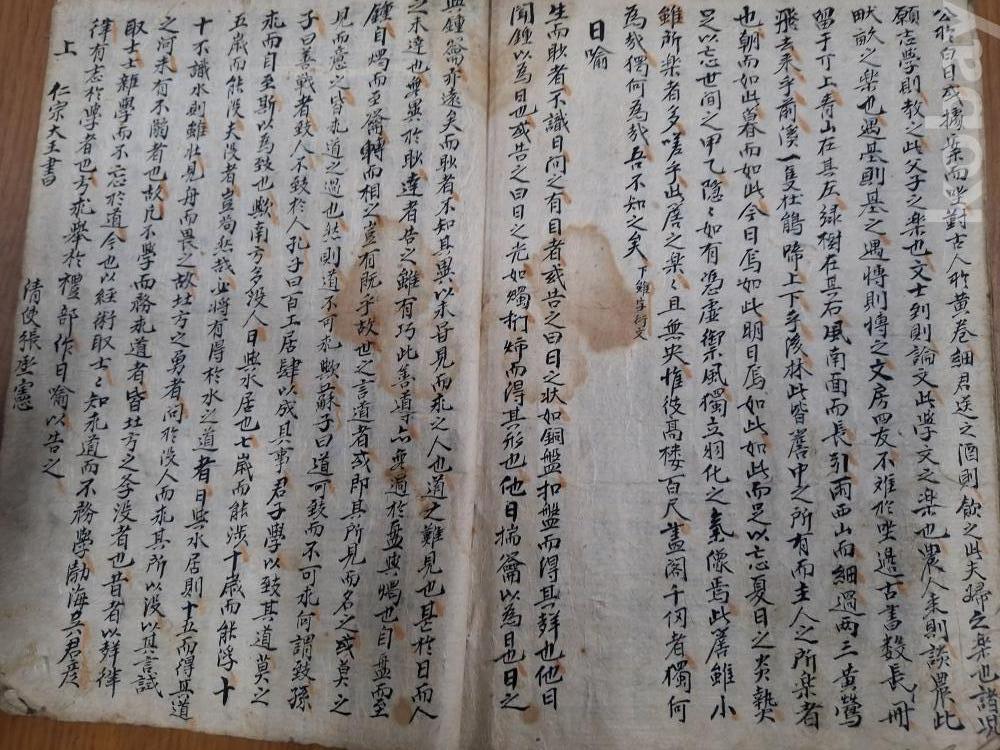 公於白日或據案而坐對古人於黃卷細君送之酒則飲之此夫婦之樂也諸兒
願志學則教之此父子之楽也文士到則論文此學文之楽也農人来則談農此
畎畝之楽也遇碁則碁之遇博則博之文房四友不難於坐邊古書數長冊
留于丌上青山在其左綠樹在其右風南面而長引雨西山而細過兩三黃鶯
飛去来乎前溪一隻杜鵑啼上下乎後林此皆舊中之所有而主人之所楽者
也朝而如此暮而如此今日焉如此明日焉如此如此而足以忘夏日之炎熱
足以忘世間之甲乙隱〻如有馮虛御風獨立羽化之氣像焉此居雖小
雖所楽者多嗟乎此居之楽〻且無央惟彼高楼百尺畫阁千仞者獨何
為哉獨何為哉吾不知之矣 下雖字衍文
日喻
生而眇者不識日問之有目者或告之曰日之状如銅盤扣盤而得其聲也他日
聞鍾以為日也或告之曰日之光如燭捫燭而得其形也他日揣籥以為日也日之
與鍾籥亦遠矣而眇者不知其異以未甞見而求之人也道之難見也甚於日而人
之未達也無異於眇達者告之雖有巧此善道亦無過於盤與燭也自盤而至
鍾自燭而至籥轉而相之豈有既乎故世之言道者或即其所見而名之或莫之
見而意之皆求道之過也然則道不可求歟蘇子曰道可致而不可求何謂致孫
子曰善戰者致人不致於人孔子曰百工居肆以成其事君子學以致其道莫之
求而自至斯以為致也歟南方多没人日與水居也七歲而能涉十歲而能浮十
五歲而能没夫没者豈苟然哉必將有得於水之道者日與水居則十五而得其道
十不識水則雖壮見舟而畏之故北方之勇者問於没人而求其所以没以其言試
之河未有不溺者也故凡不學而務求道者皆北方之学没者也昔者以聲律
取士士雜學而不志於道今也以経術取士〻知求道而不務學渤海吳君彦
律有志於學者也方求舉於禮部作日喻以告之
上 仁宗大王書